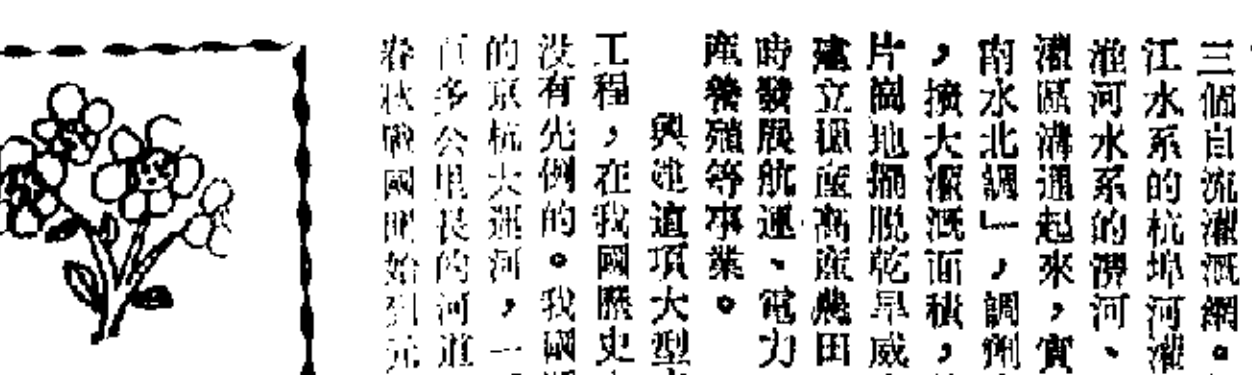 三個自流灌溉網。
江水系的杭埠河灌
淮河水系的淠河、
灌區溝通起來，實
南水北調」，調劑
，擴大灌溉面積，
片崗地擺脫乾旱威
建立穩產高產農田
時發展航運、電力
產養殖等事業。
興建這項大型
工程，在我國歷史
没有先例的。我國
的京杭大運河，一
百多公里長的河道
春秋戰國開始到元